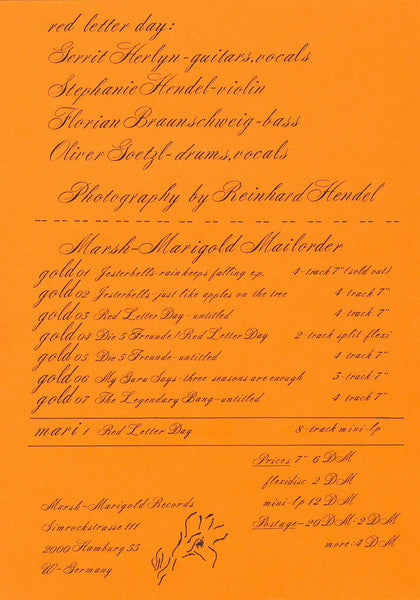 red letter day:
Gerrit Herlyn-guitars,vocals
Stephanie Hendel-violin
Florian Braunschweig-bass
Oliver Goetzl-drums,vocals
Photography by Reinhard Hendel
Marsh-Marigold Mailorder
gold 01 Jesterbells-rain keeps falling ep. 4-track 7"(sold out)
gold 02 Jesterbells-just like apples on the tree 4-track 7"
gold 03 Red Letter Day-untitled 4-track 7"
gold 04 Die 5 Freunde/Red Letter Day 2-track split-flexi
gold 05 Die 5 Freunde-untitled 4-track 7"
gold 06 My Guru Says-three seasons are enough 3-track 7"
gold 07 The Legendary Bang-untitled 4-track 7"
mari 1 Red Letter Day 8-track mini-lp
Prices 7" 6 DM
flexidisc 2 DM
mini-lp 12 DM
Postage-20DM:2DM
more:4DM
Marsh-Marigold Records
Simrockstrasse 111
2000 Hamburg 55
W-Germany